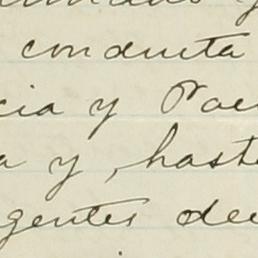 conducta
cia y Pa
a y, hast
gentes de